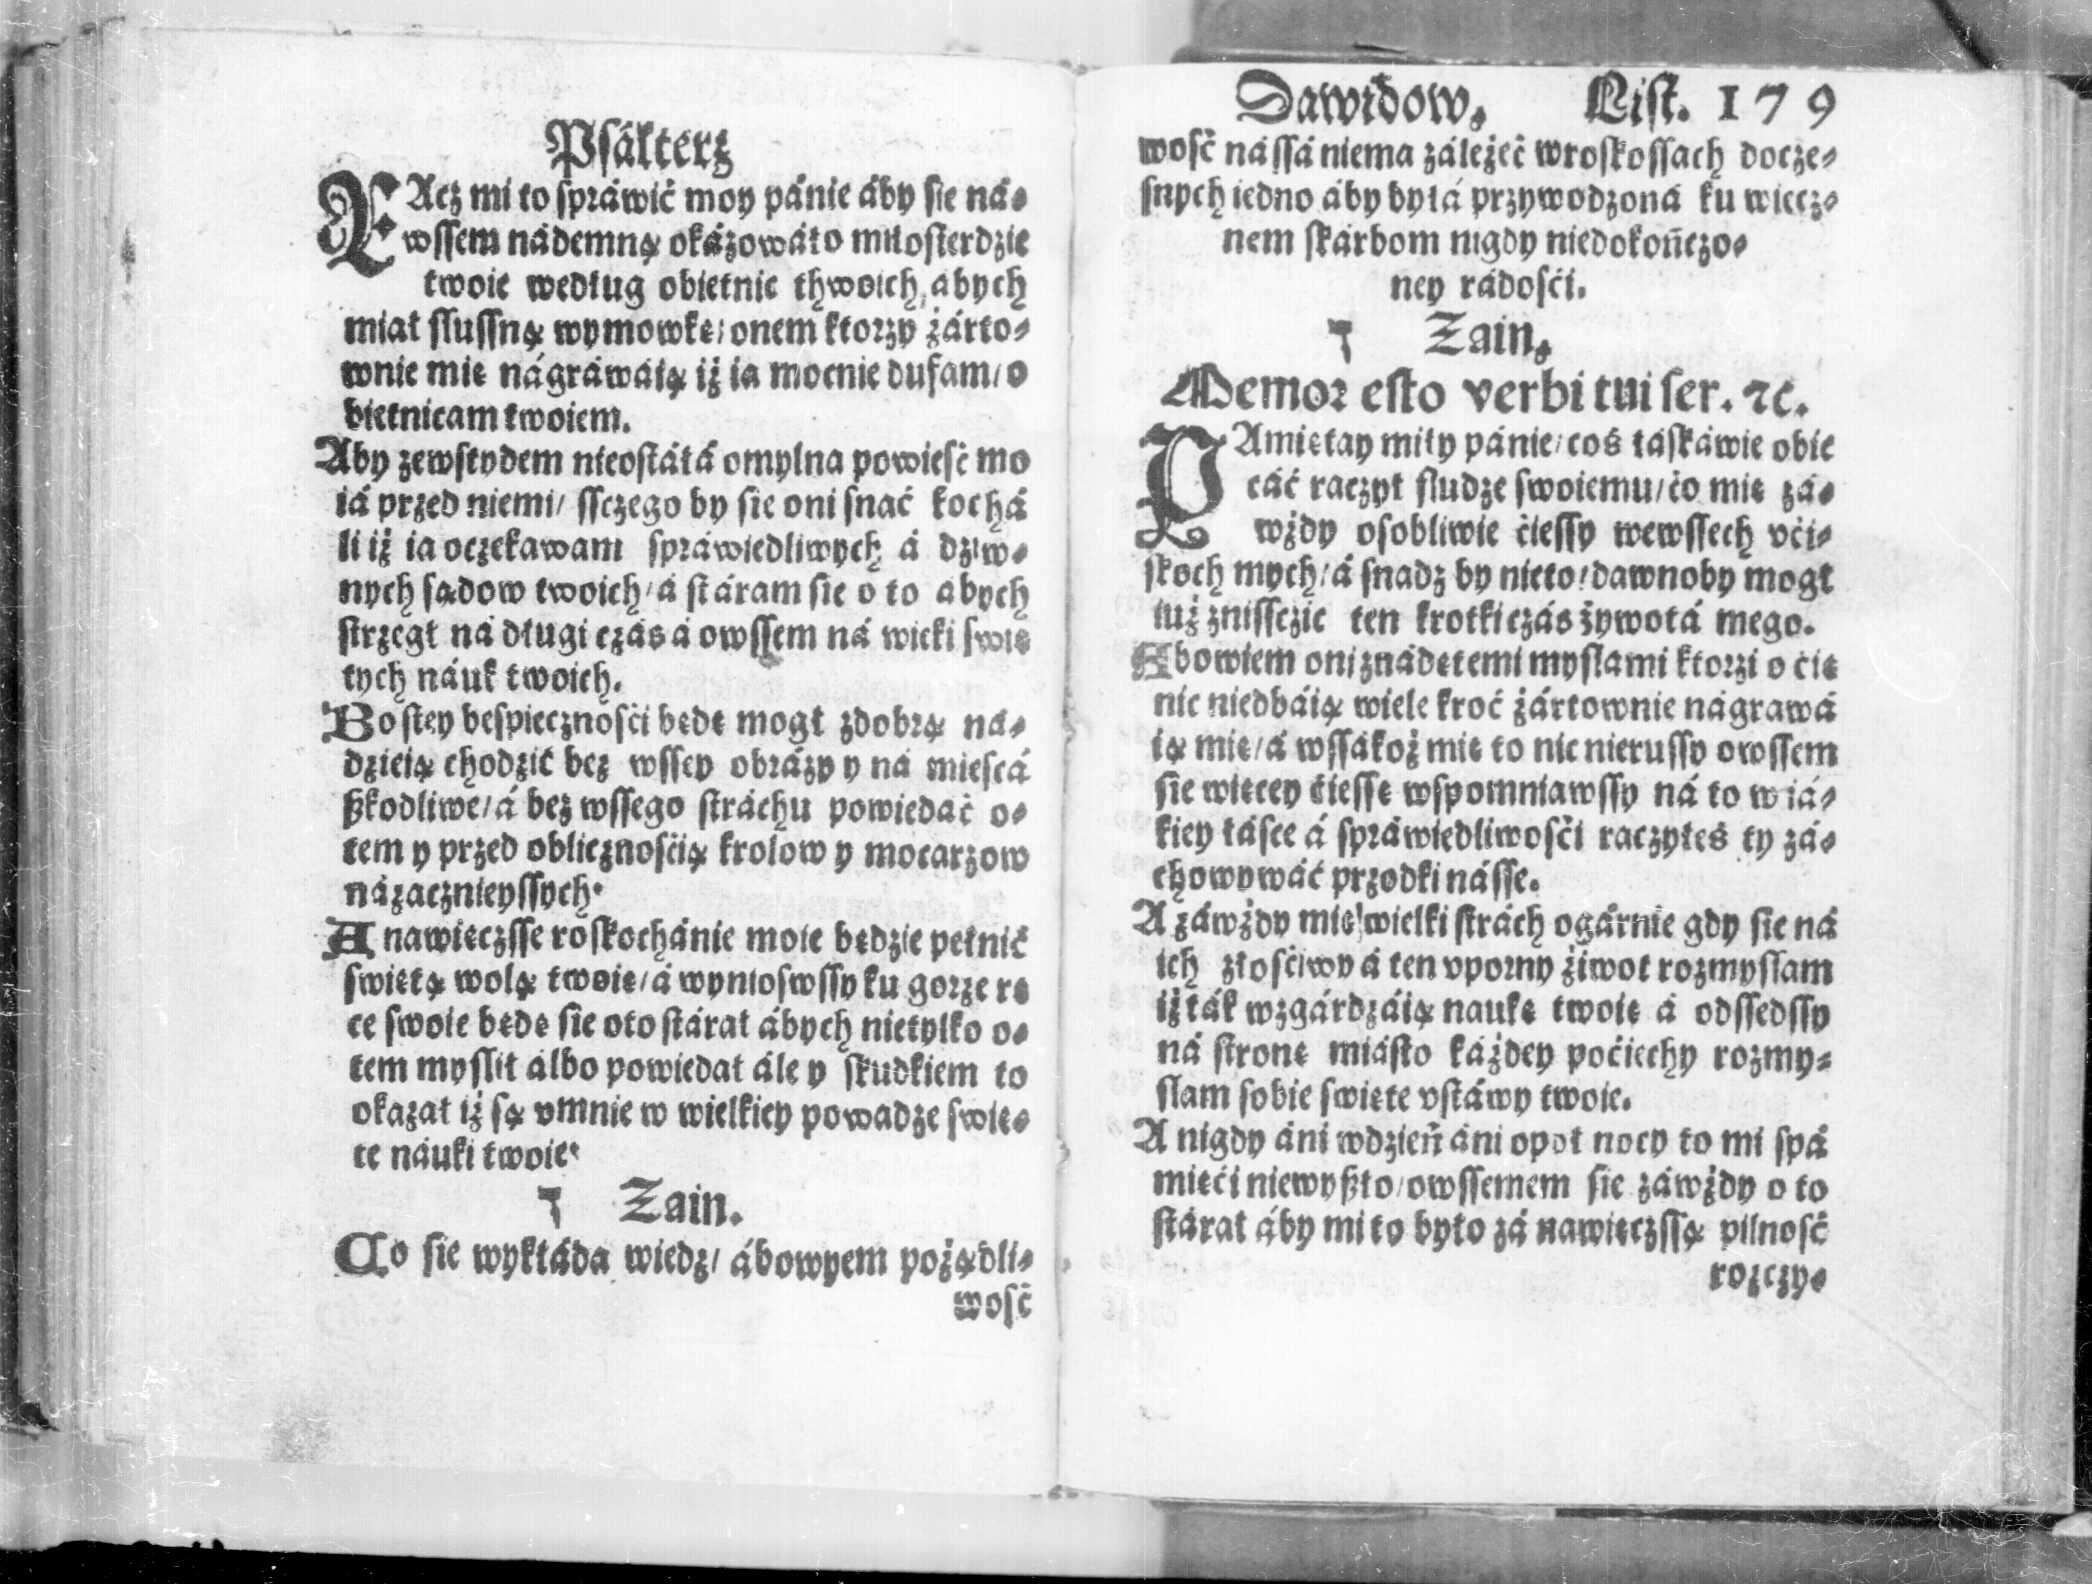 Psálterz
RAcz mi to spráwić moy pánie áby sie ná⸗
wssem nádemną okázowáło miłosierdzie
twoie według obietnic thwoich, abych
miał słussną wymowkę/ onem ktorzy żárto⸗
wnie mię nágráwáią iż ia mocnie dufam/ o
bietnicam twoiem.
Aby zewstydem nieostáłá omylna powieść mo
iá przed niemi/ ssczego by sie oni snać kochá
li iż ia oczekawam spráwiedliwych á dziw⸗
nych sądow twoich/ á stáram sie o to abych
strzegł ná długi czás á owssem ná wieki swię
tych náuk twoich.
Bo stey bespiecznośći będę mogł zdobrą ná⸗
dzieią chodzić bez wssey obrázy y ná miescá
ßkodliwe/ á bez wssego stráchu powiedáć o⸗
tem y przed oblicznośćią krolow y mocarzow
názacznieyssych.
A nawięczsse roskochánie moie będzie pełnić
swiętą wolą twoię/ á wyniowssy ku gorze rę
ce swoie będę sie oto stárał ábych nietylko o⸗
tem myslił álbo powiedał ále y skudkiem to
okazał iż są vmnie w wielkiey powadze swię⸗
te náuki twoie.
ז Zain.
Co sie wykłáda wiedz/ ábowyem pożądli⸗
wość
Dawidow. List. 179
wość nássá niema záleżeć wroskossach docze⸗
snych iedno áby byłá przywodzoná ku wiecz⸗
nem skárbom nigdy niedokończo⸗
ney rádośći.
ז Zain.
Memor esto verbi tui ser. ⁊c.
PAmiętay miły pánie/ coś łáskáwie obie
cáć raczył słudze swoiemu/ co mię zá⸗
wżdy osobliwie ćiessy wewssech vći⸗
skoch mych/ á snadz by nieto/ dawnoby mogł
iuż znissczie ten krotki czás żywotá mego.
Abowiem oni znádętemi myslami ktorzi o ćię
nic niedbáią wiele kroć żártownie nágrawá
ią mię/ á wssákoż mię to nic nierussy owssem
sie więcey ćiessę wspomniawssy ná to w iá⸗
kiey łásce á spráwiedliwośći raczyłeś ty zá⸗
chowywáć przodki násse.
A záwżdy mię wielki strách ogárnie gdy sie ná
ich złośćiwy á ten vporny żiwot rozmyslam
iż ták wzgárdzáią naukę twoię á odssedssy
ná stronę miásto káżdey poćiechy rozmy⸗
slam sobie swięte vstáwy twoie.
A nigdy áni wdzień áni opoł nocy to mi spá
mięći niewyßło/ owssemem sie záwżdy o to
stárał áby mi to było zá nawięczssą pilność
rozczy⸗